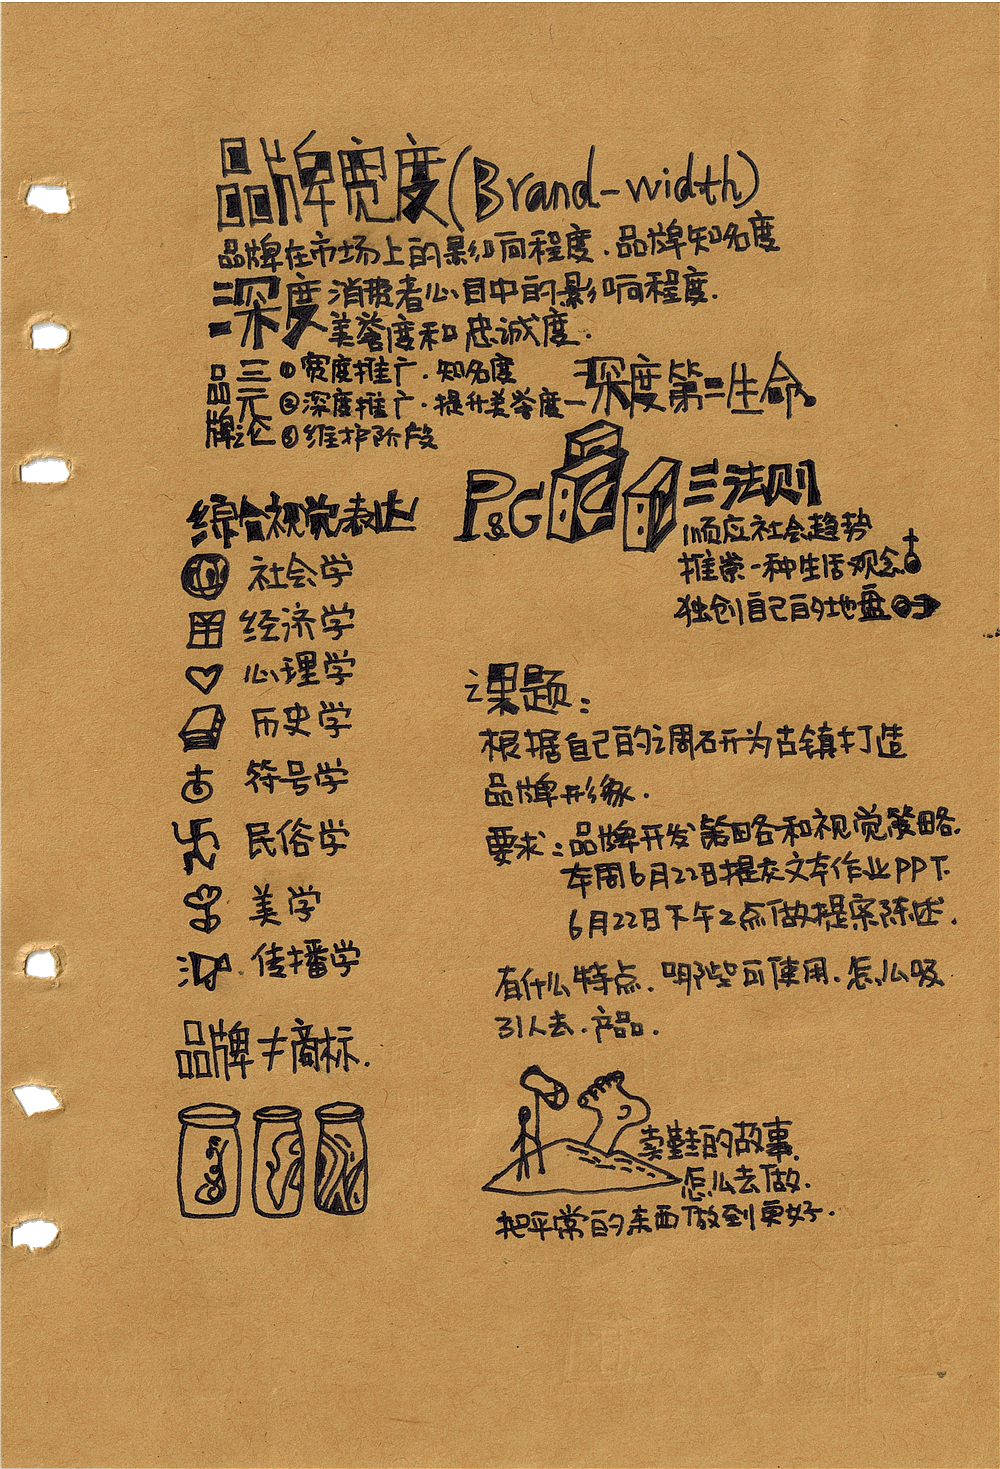 品牌宽度(Brand-width)
品牌在市场上的影响程度.品牌知名度
深度 消费者心目中的影响程度.
美誉度和忠诚度.
品牌三元论
①宽度推广.知名度
②深度推广.提升美誉度—深度第二生命.
③维护阶段
P&G
三法则
顺应社会趋势
推崇一种生活观念
独创自己的地盘
综合视觉表达
社会学
经济学
心理学
历史学
符号学
民俗学
美学
传播学
品牌≠商标.
课题:
根据自己的调研为古镇打造
品牌形象.
要求:品牌开发策略和视觉策略.
本周6月22日提交文本作业PPT.
6月22日下午2点做提案陈述.
有什么特点.哪些可使用.怎么吸
引人去.产品.
卖鞋的故事.
怎么去做.
把平常的东西做到更好.